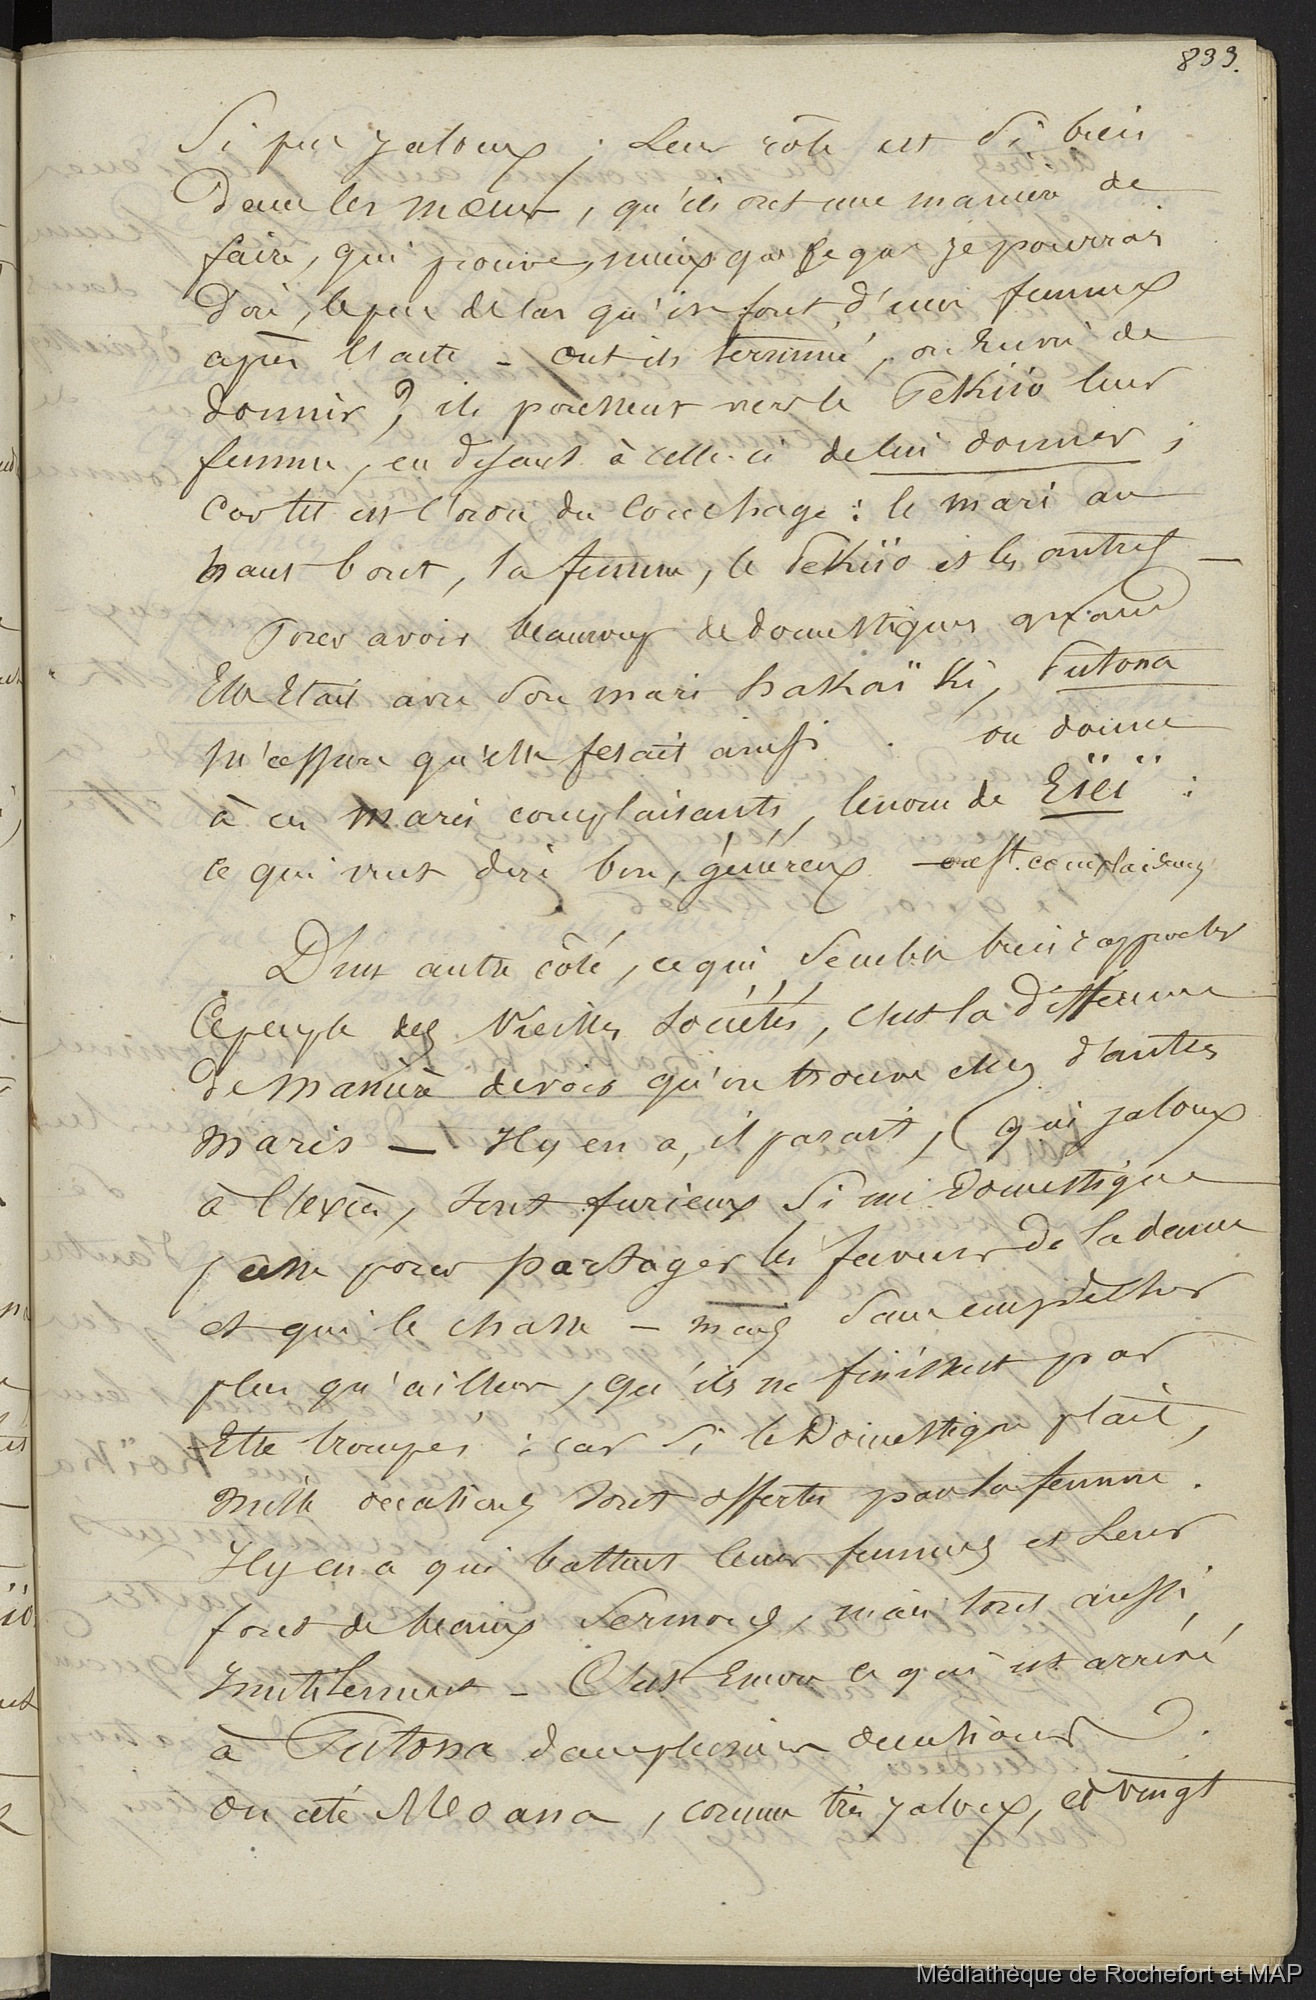 833.
si peu jaloux ; leur rôle est si bien
dans les mœurs, qu'ils ont une manière de
faire, qui prouve, mieux que ce que je pourrais
dire, le peu de cas qu'ils font d'eux femmes
après l'acte - ont ils terminé, ou envie de
dormir, ils poussent vers le Pekiio leur
femme, en disant à celle-ci de lui donner ;
car tel est l'ordre du couchage : le mari au
haut bout, la femme, le Pekiio et les autres —
Pour avoir beaucoup de domestiques quand
Elle était avec son mari hakaïki, Tutona
m'assure qu'elle fesait ainsi . on donne
à ces maris complaisants, le nom de Eïeï :
ce qui veut dire bon, généreux — complaisant
D'un autre côté, ce qui semble bien rapprocher
ce peuple des vieilles sociétés, c'est la différence
de manière de voir qu'on trouve chez d'autres
maris — Il y en a, il parait, qui jaloux
à l'excès, sont furieux si un domestique
passe pour partager les faveurs de la dame
et qui le chasse — mais sans empêcher
plus qu'ailleurs, qu'ils ne finissent par
Etre trompés : car si le domestique plait,
mille occasions sont offertes par la femme.
Il y en a qui battent leurs femmes et leur
font de beaux sermons, mais tout aussi
inutilement - C'est encore ce qui est arrivé
à Tutona dans plusieurs occasions .
on cite Moana, comme très jaloux, et vingt
Médiathèque de Rochefort et MAP